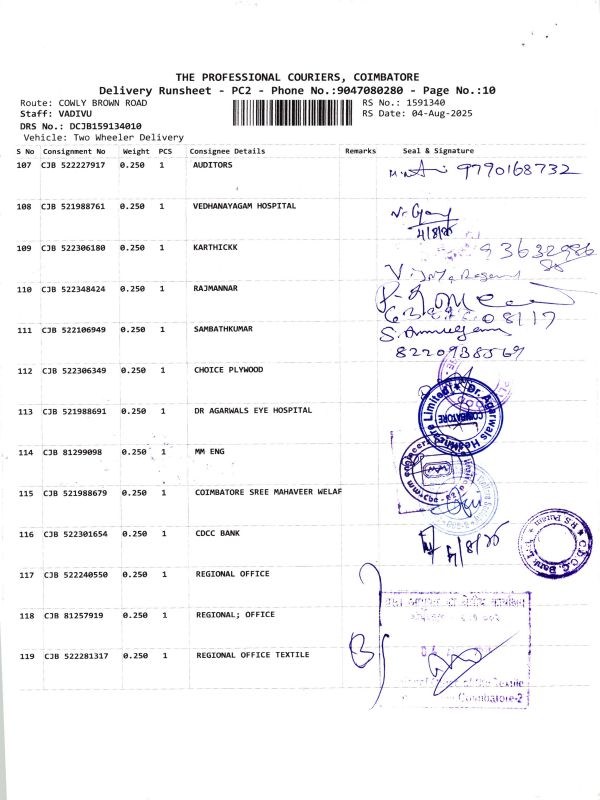 THE PROFESSIONAL COURIERS, COIMBATORE
Delivery Runsheet - PC2 - Phone No.:9047080280 - Page No.:10
Route: COWLY BROWN ROAD RS No.: 1591340
Staff: VADIVU RS Date: 04-Aug-2025
DRS No.: DCJB159134010
Vehicle: Two Wheeler Delivery
S No Consignment No Weight PCS Consignee Details Remarks Seal & Signature
107 CJB 522227917 0.250 1 AUDITORS 9790168732
108 CJB 521988761 0.250 1 VEDHANAYAGAM HOSPITAL
4/8/25
109 CJB 522306180 0.250 1 KARTHICKK
110 CJB 522348424 0.250 1 RAJMANNAR
111 CJB 522106949 0.250 1 SAMBATHKUMAR
8220938569
112 CJB 522306349 0.250 1 CHOICE PLYWOOD
113 CJB 521988691 0.250 1 DR AGARWALS EYE HOSPITAL
Dr. Agarwals Healthcare Limited
COIMBATORE
114 CJB 81299098 0.250 1 MM ENG
115 CJB 521988679 0.250 1 COIMBATORE SREE MAHAVEER WELAF
116 CJB 522301654 0.250 1 CDCC BANK
4/8/25
117 CJB 522240550 0.250 1 REGIONAL OFFICE
118 CJB 81257919 0.250 1 REGIONAL; OFFICE
119 CJB 522281317 0.250 1 REGIONAL OFFICE TEXTILE
of the Textile
Coimbatore-2